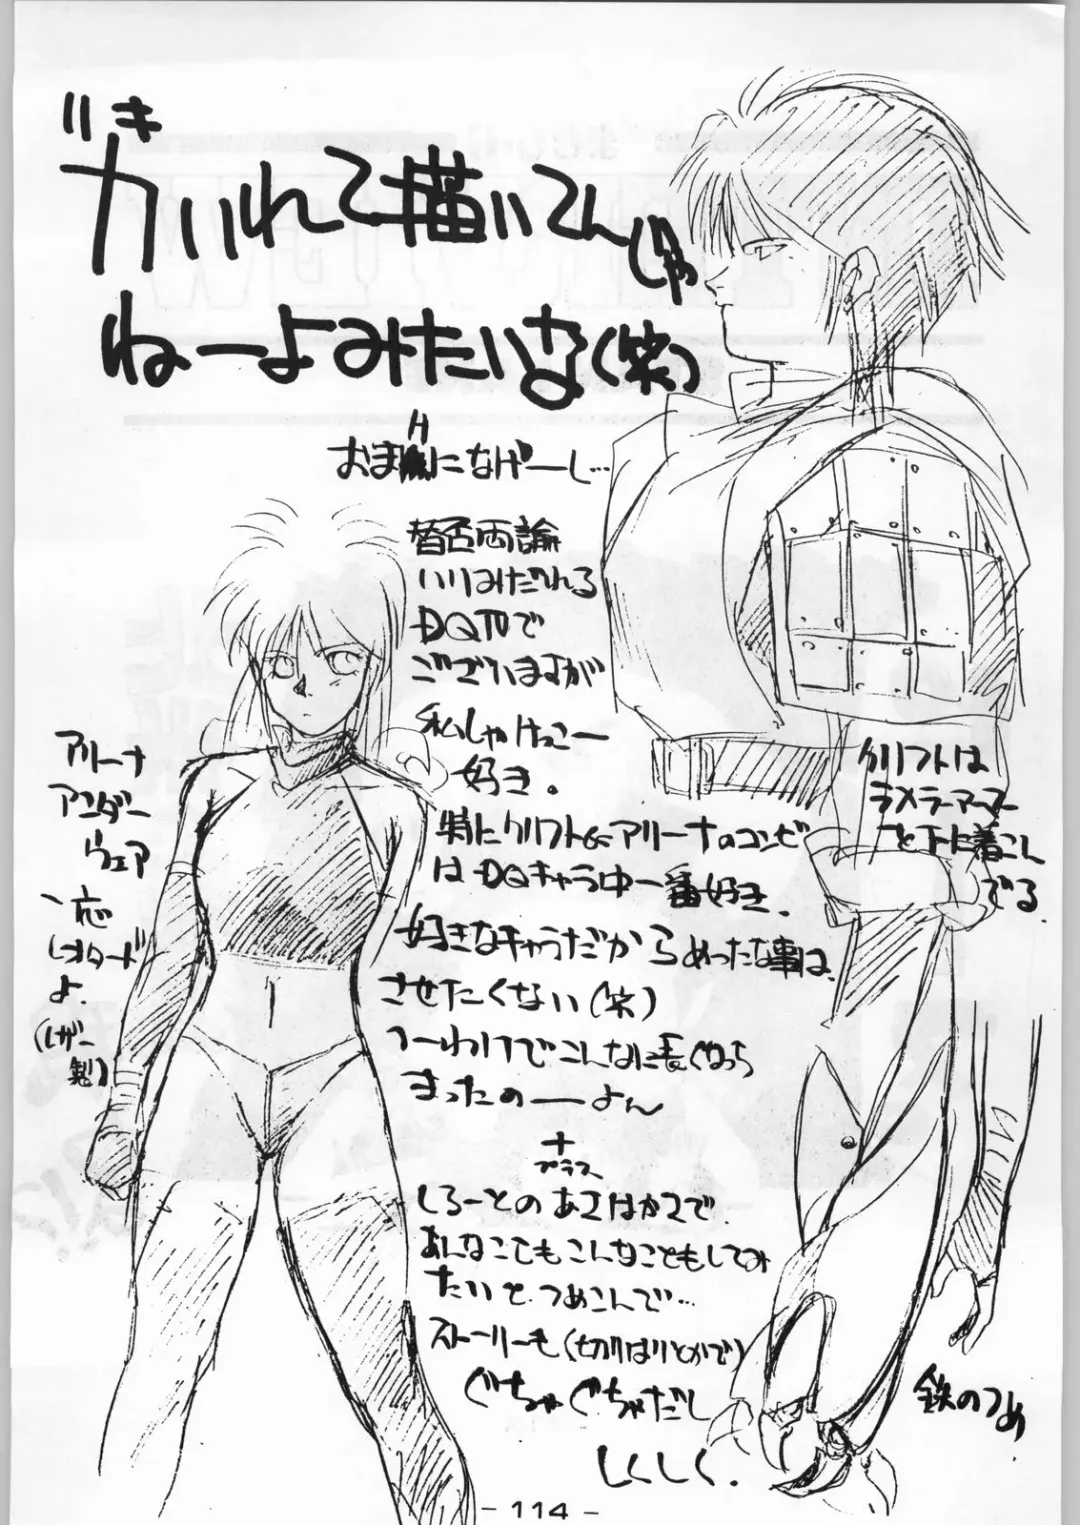 描いてんじゃ
ねーよみたいな(笑)
おまHになげーし…
賛否両論
いりみだれる
DQⅣで
ございますが
私しゃけっこー
好き。
特にクリフト&アリーナのコンビ
はDQキャラ中一番好き。
好きなキャラだからめったな事は
させたくない(笑)
つーわけでこんなに長くなっち
まったのーーよん
+
プラス
しろーとのあさはかさで
あんなこともこんなこともしてみ
たいと つめこんで…
ストーリーも(切りはりとかで)
ぐちゃぐちゃだし
しくしく.
アリーナ
アンダー
ウェア
一応
レオタード
よ.
(レザー
製)
クリフトは
ラメラーアーマー
下に着こん
でる.
鉄のつめ
- 114 -